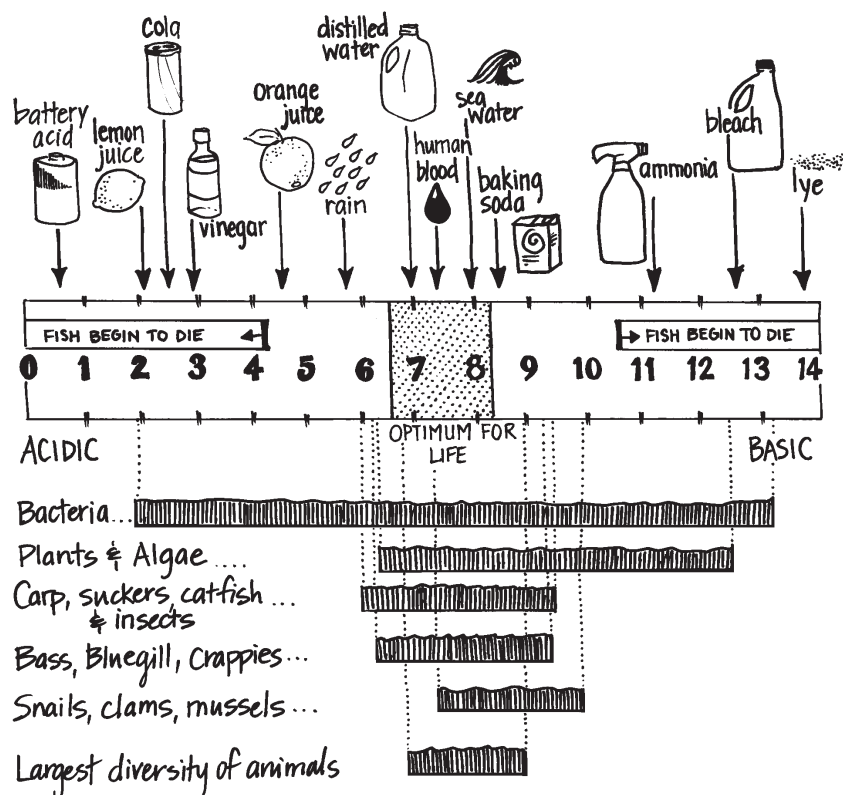 cola
distilled
water
battery
acid
lemon
juice
vinegar
orange
juice
rain
human
blood
sea
water
baking
soda
ammonia
bleach
lye
FISH BEGIN TO DIE
FISH BEGIN TO DIE
0 1 2 3 4 5 6 7 8 9 10 11 12 13 14
ACIDIC
OPTIMUM FOR
LIFE
BASIC
Bacteria...
Plants & Algae ....
Carp, suckers, catfish ...
& insects
Bass, Bluegill, Crappies...
Snails, clams, mussels ...
Largest diversity of animals